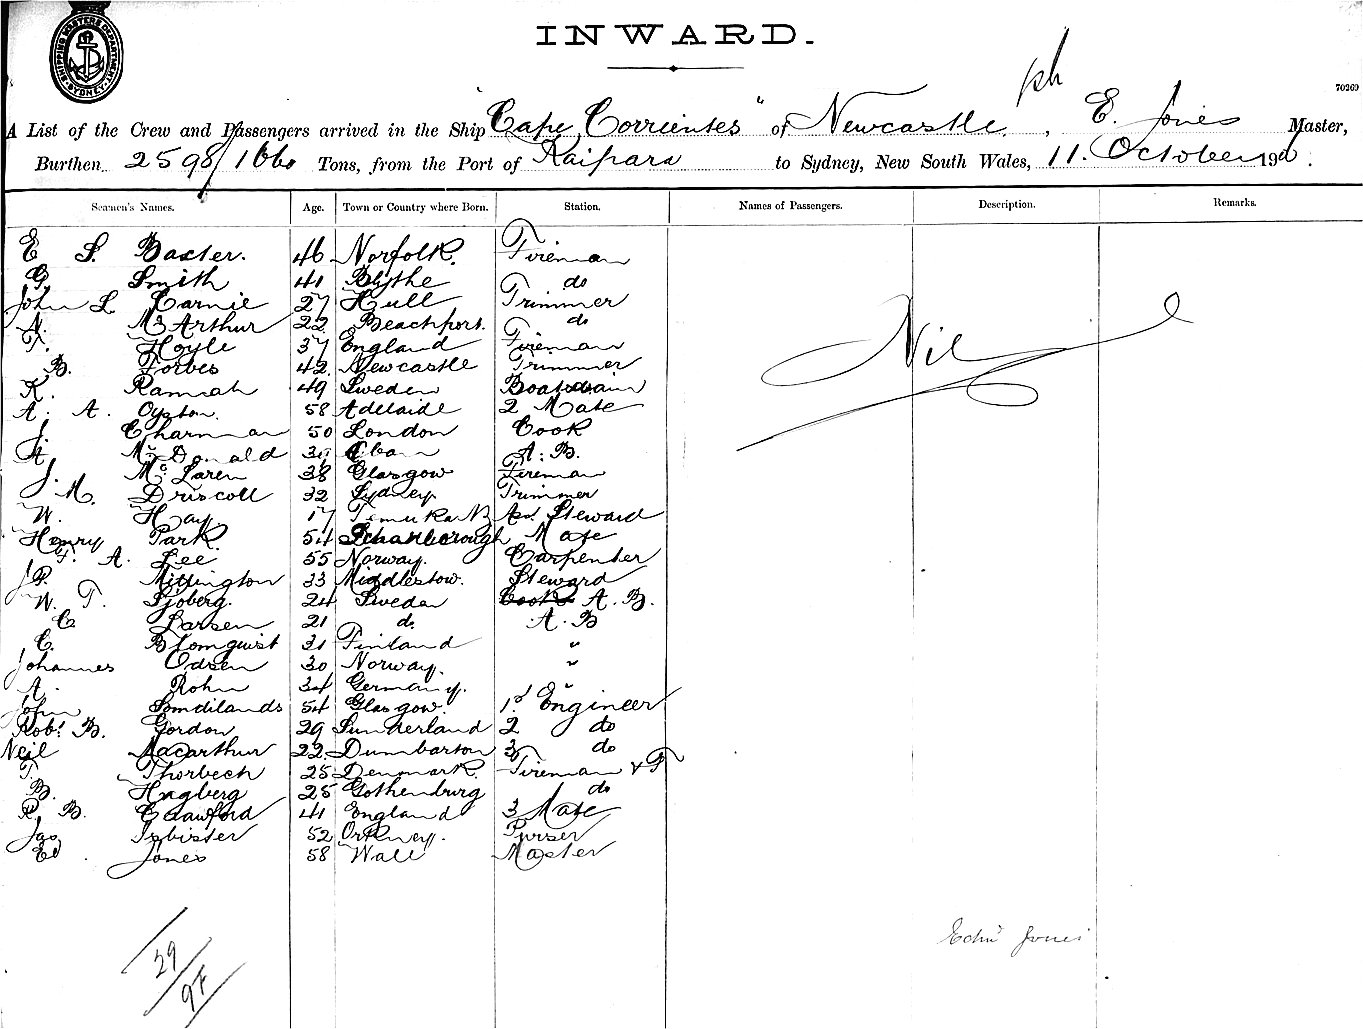 SHIPPING MASTERS DEPARTMENT SYDNEY
INWARD.
70269
A List of the Crew and Passengers arrived in the Ship "Cape Corrientes" of Newcastle, E. Jones Master,
Burthen 2598/1660 Tons, from the Port of Kaipara to Sydney, New South Wales, 11. October 190
Seamen's Names. Age. Town or Country where Born. Station. Names of Passengers. Description. Remarks.
E S. Baxter. 46 Norfolk. Fireman
G. Smith 41 Blythe do
John L Carnie 27 Hull Trimmer
N. McArthur 22 Beachport. do
T. Hoyle 37 England Fireman
B. Forbes 42 Newcastle Trimmer
K. Rannah 49 Sweden Boatswain
A. A. Oyston. 58 Adelaide 2 Mate
J. Charman 50 London Cook
McDonald Oban A.B.
J. McLaren 38 Glasgow Fireman
M. Driscoll 32 Sydney Trimmer
W. Hay 17 Temuka NZ Steward
Henry Park 54 Scharborough Mate
F. A. Lee 55 Norway. Carpenter
J.P. Mittington 33 Middlestow. Steward
W. T. Sjoberg. 24 Sweden Cook A.B.
C Larsen 21 do. A.B
C. Blomquist 31 Finland "
Johannes Odsen 30 Norway. "
A. Rohn 34 Germany. "
John Sandilands 54 Glasgow. 1st Engineer
Robt. B. Gordon 29 Sunderland 2 do
Neil Macarthur 22 Dumbarton 3 do
T. Thorbech 25 Denmark. Fireman & T
B. Hagberg 25 Gothenburg do
R. B. Crawford 41 England 3 Mate
Jas Isbister 52 Orkney. Purser
Ed. Jones 58 Wall Master
Nil
Edwd Jones
29